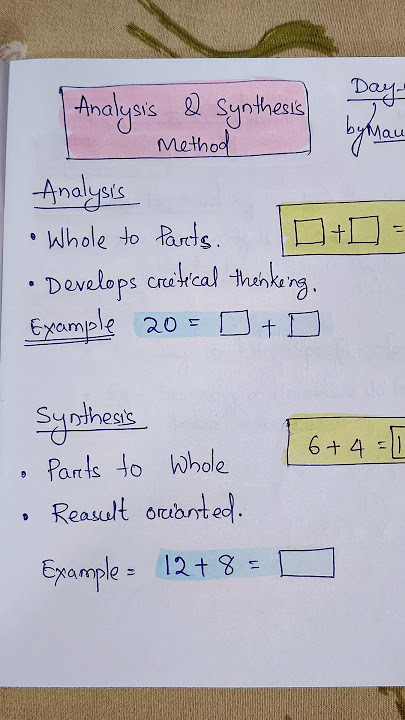 Analysis & Synthesis
Method
Day-
by Mau
Analysis
• Whole to Parts.
□ + □ =
• Develops critical thinking.
Example 20 = □ + □
Synthesis
6 + 4 = 1
• Parts to Whole
• Reasult orianted.
Example = 12 + 8 = □